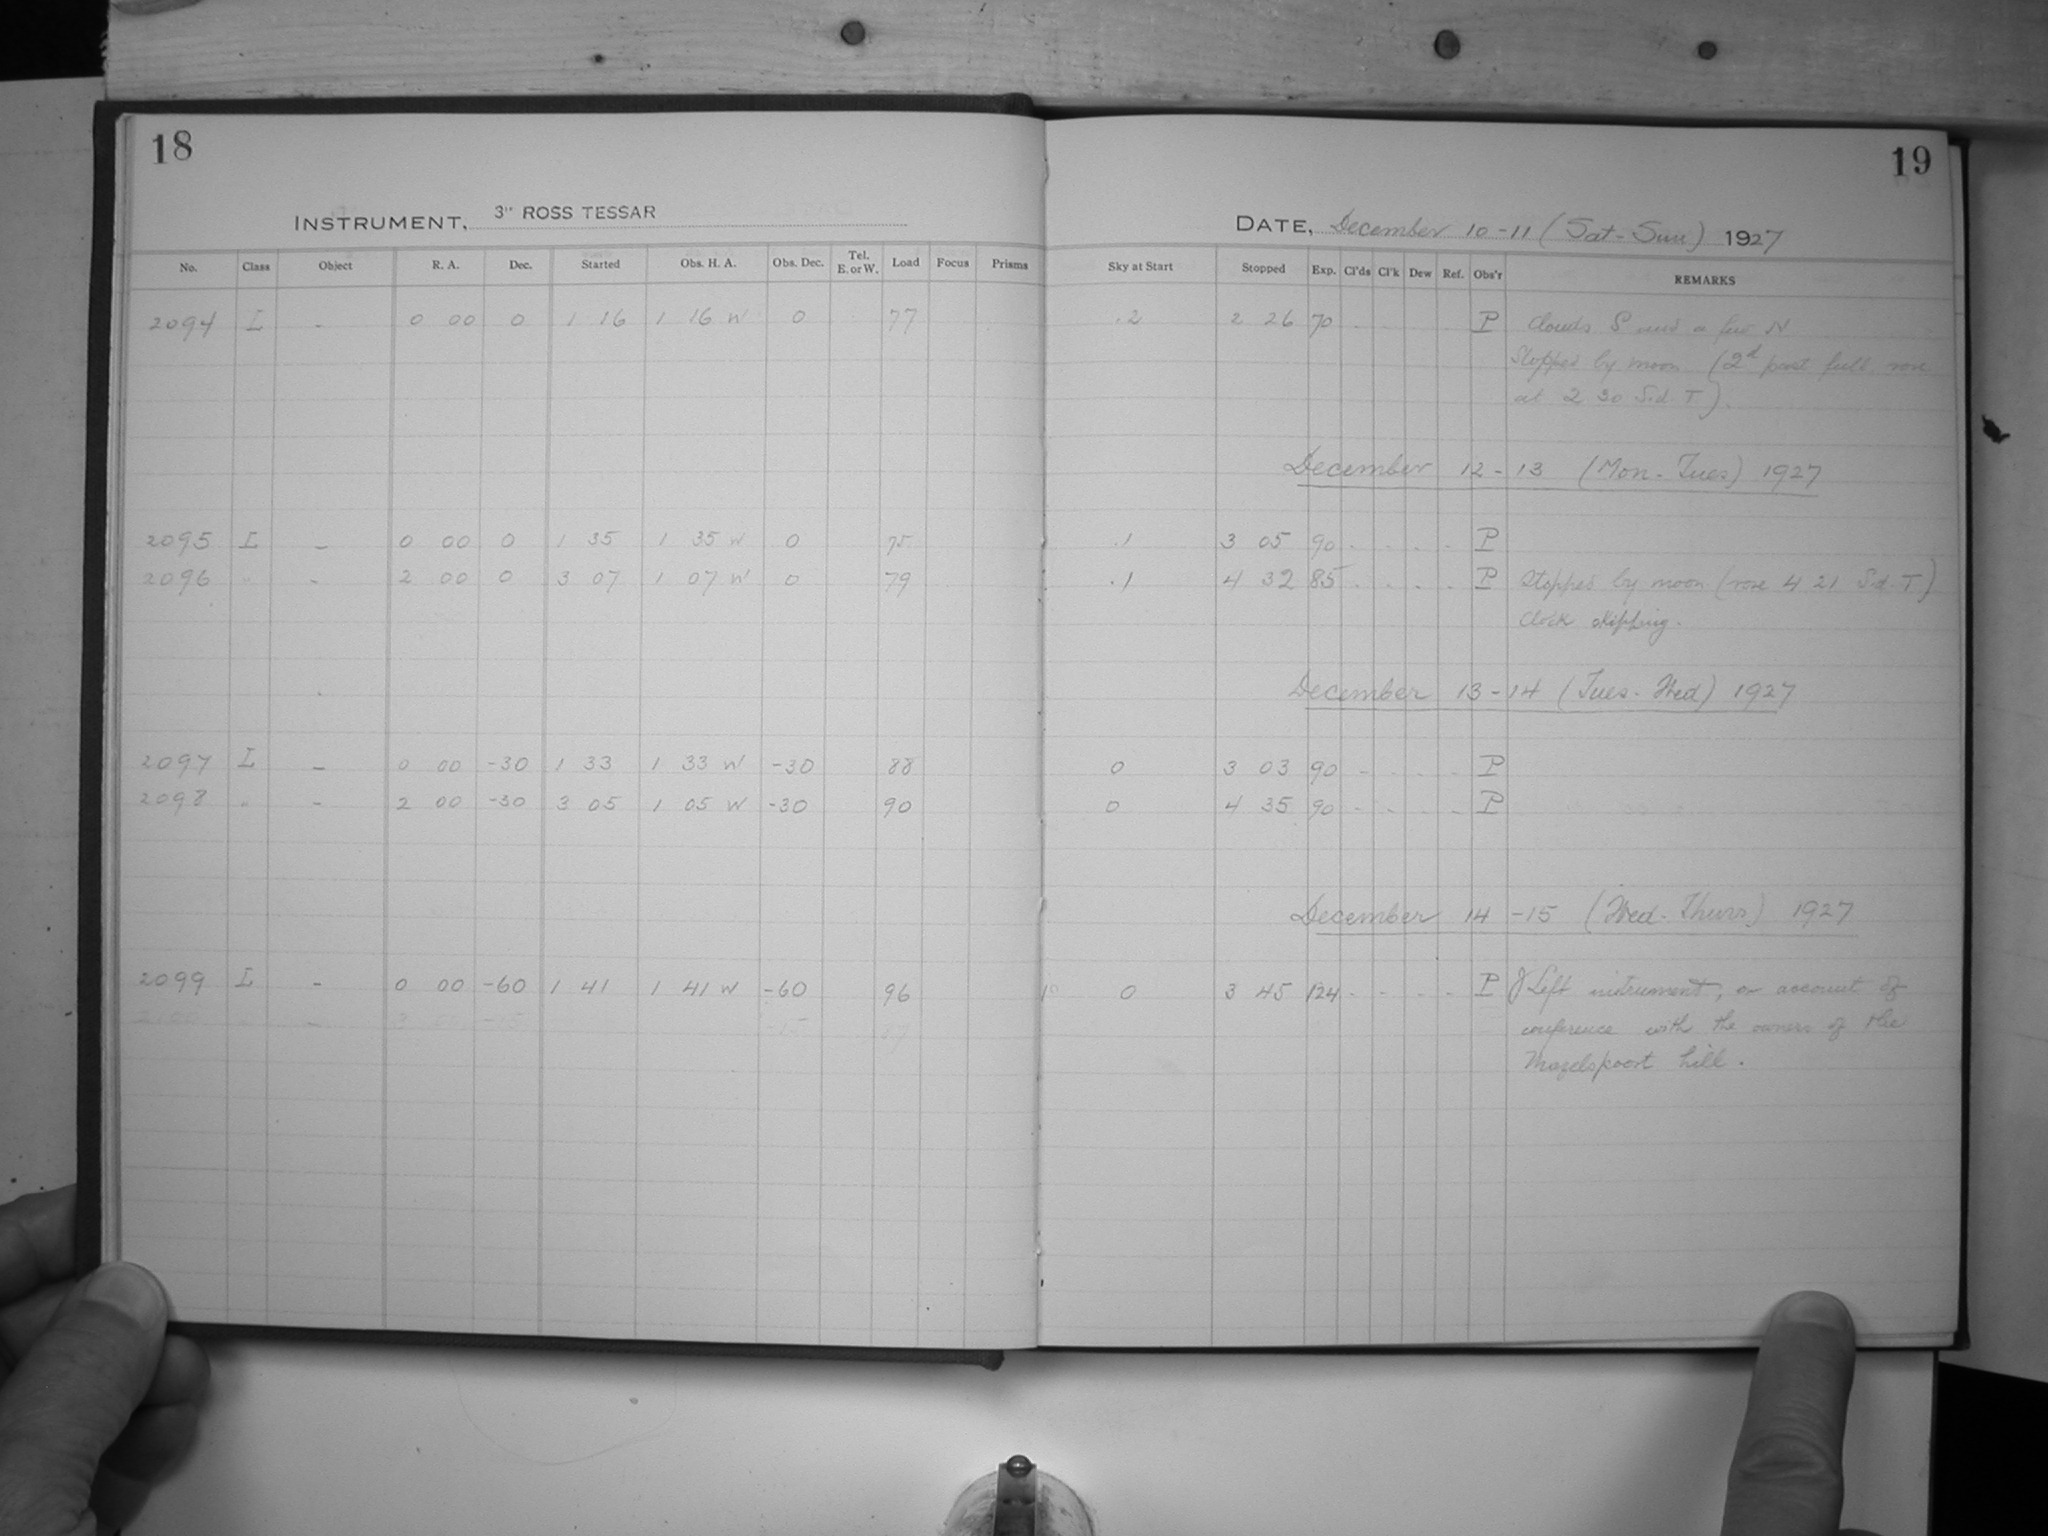 18
INSTRUMENT, 3" ROSS TESSAR
No. Class Object R. A. Dec. Started Obs. H. A. Obs. Dec. Tel. E. or W. Load Focus Prisms
2094 I - 0 00 0 1 16 1 16 W 0 77
2095 I - 0 00 0 1 35 1 35 W 0 75
2096 " - 2 00 0 3 07 1 07 W 0 79
2097 I - 0 00 -30 1 33 1 33 W -30 88
2098 " - 2 00 -30 3 05 1 05 W -30 90
2099 I - 0 00 -60 1 41 1 41 W -60 96
19
DATE, December 10-11 (Sat-Sun) 1927
Sky at Start Stopped Exp. Cl'ds Cl'k Dew Ref. Obs'r REMARKS
.2 2 26 70 P Clouds S and a few N
Stopped by moon (2d past full, rose
at 2 30 Sid. T).
December 12-13 (Mon-Tues) 1927
.1 3 05 90 - - - - P
.1 4 32 85 - - - - P Stopped by moon (rose 4 21 Sid. T)
Clock skipping.
December 13-14 (Tues-Wed) 1927
0 3 03 90 - - - - P
0 4 35 90 - - - - P
December 14-15 (Wed-Thurs) 1927
0 3 45 124 - - - - P I Left instrument, on account of
conference with the owners of the
Mazelspoort hill.